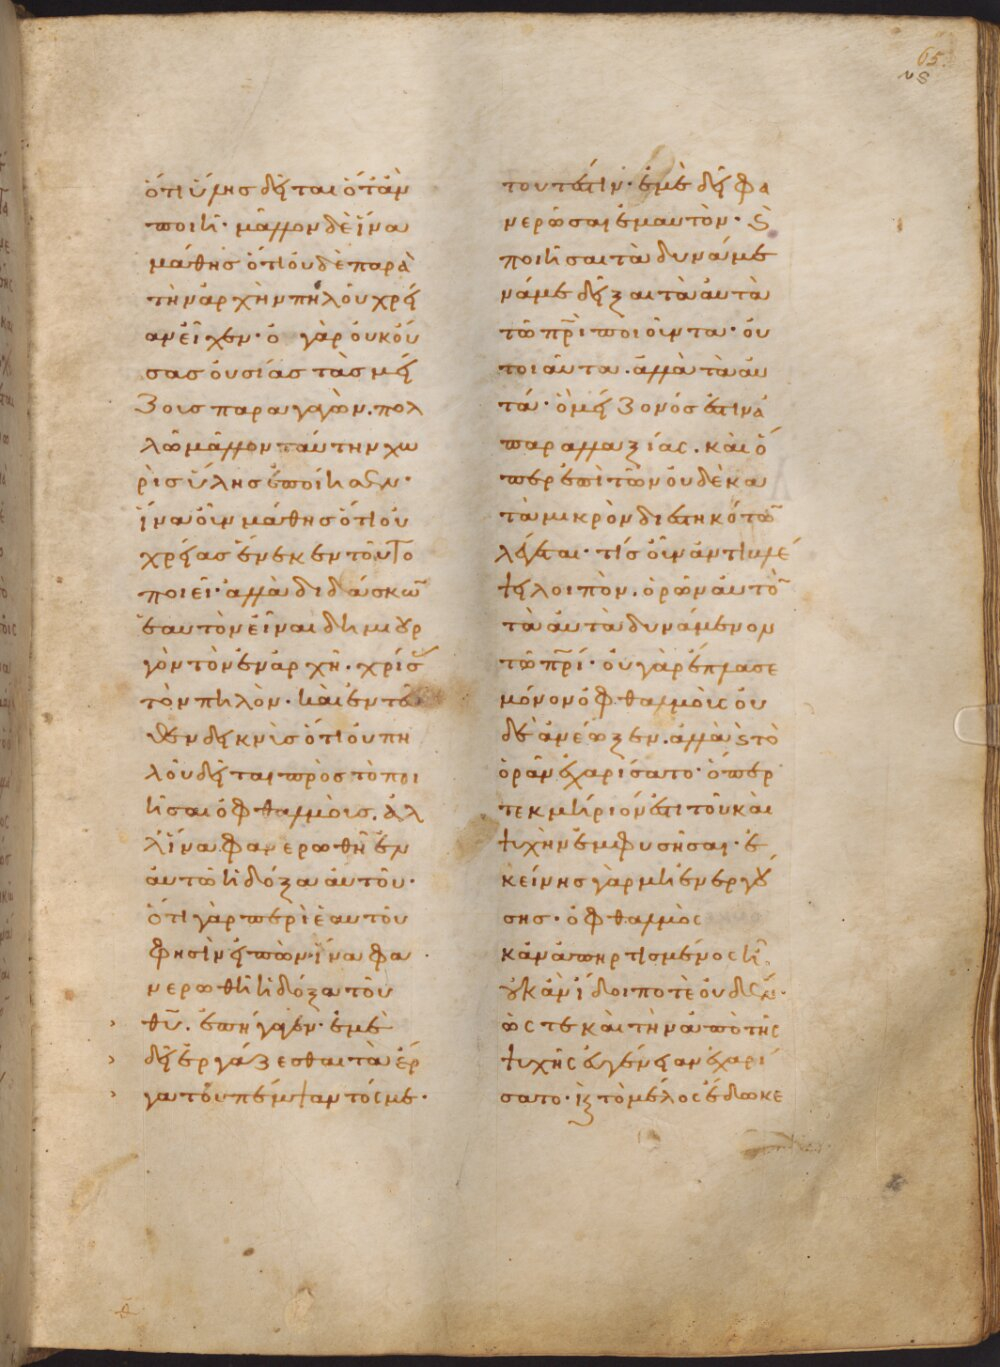 ὅτι ὕλης δεῖται ὅτὰν
ποιῆ· μᾶλλον δὲ ἵνα
μάθης ὅτι οὐδὲ παρὰ
τὴν ἀρχὴν πηλοῦ χρεί
αν εἶχεν· ὁ γὰρ οὐκ οὔ
σας οὐσίας τὰς μεί
ζους παραγαγὼν. πολ
λῶ μᾶλλον ταύτην χω
ρὶς ὕλης ἐποίησεν·
ἵνα οὖν μάθης ὅτι οὐ
χρείας ἕνεκεν τοῦτο
ποιεῖ· ἀλλὰ διδάσκων
ἑαυτὸν εἶναι δημιουρ
γὸν τὸν ἐν ἀρχῆ. χρίσας
τὸν πηλὸν· καὶ ἐντεῦ
θεν δεικνὺς ὅτι οὐ πη
λοῦ δεῖται πρὸς τὸ ποι
ῆσαι ὀφθαλμοὺς. ἀλ
λ' ἵνα φανερωθῆ ἐν
αὐτῶ ἡ δόξα αὐτοῦ·
ὅτι γὰρ περὶ ἑαυτοῦ
φησὶν εἰπὼν· ἵνα φα
νερωθῆ ἡ δόξα τοῦ
θῦ. ἐπήγαγεν· ἐμὲ
δεῖ ἐργάζεσθαι τὰ ἔρ
γα τοῦ πέμψαντός με·
65.
νς
τουτέστιν· ἐμὲ δεῖ φα
νερῶσαι ἐμαυτὸν· ϗ
ποιῆσαι τὰ δυνάμε
νά με δεῖξαι τὰ αὐτὰ
τῶ πρὶ ποιοῦντα· οὐ
τοιαῦτα. ἀλλὰ τὰ αὐ
τά· ὁ μείζονός ἐστιν ἀ
παραλλαξίας. καὶ ὅ
περ ἐπὶ τῶν οὐδὲ κα
τὰ μικρὸν διεστηκότων
λέγεται· τίς οὖν ἀντιβλέ
ψει λοιπὸν. ὁρῶν αὐτὸν
τὰ αὐτὰ δυνάμενον
τῶ πρί· οὐ γὰρ ἔπλασε
μόνον ὀφθαλμοὺς οὐ
δὲ ἀνέωξεν. ἀλλὰ ϗ τὸ
ὁρᾶν ἐχαρίσατο· ὅπερ
τεκμήριόν ἐστι τοῦ καὶ
ψυχὴν ἐμφυσῆσαι· ἐ
κείνης γὰρ μὴ ἐνεργού
σης· ὀφθαλμὸς
κἂν ἀπηρτισμένος ἦ.
οὐκ ἂν ἴδοι ποτὲ οὐδέν·
ὥςτε καὶ τὴν ἀπὸ τῆς
ψυχῆς ἐνέργειαν ἐχαρί
σατο· ϗ τὸ μέλος ἔδωκε